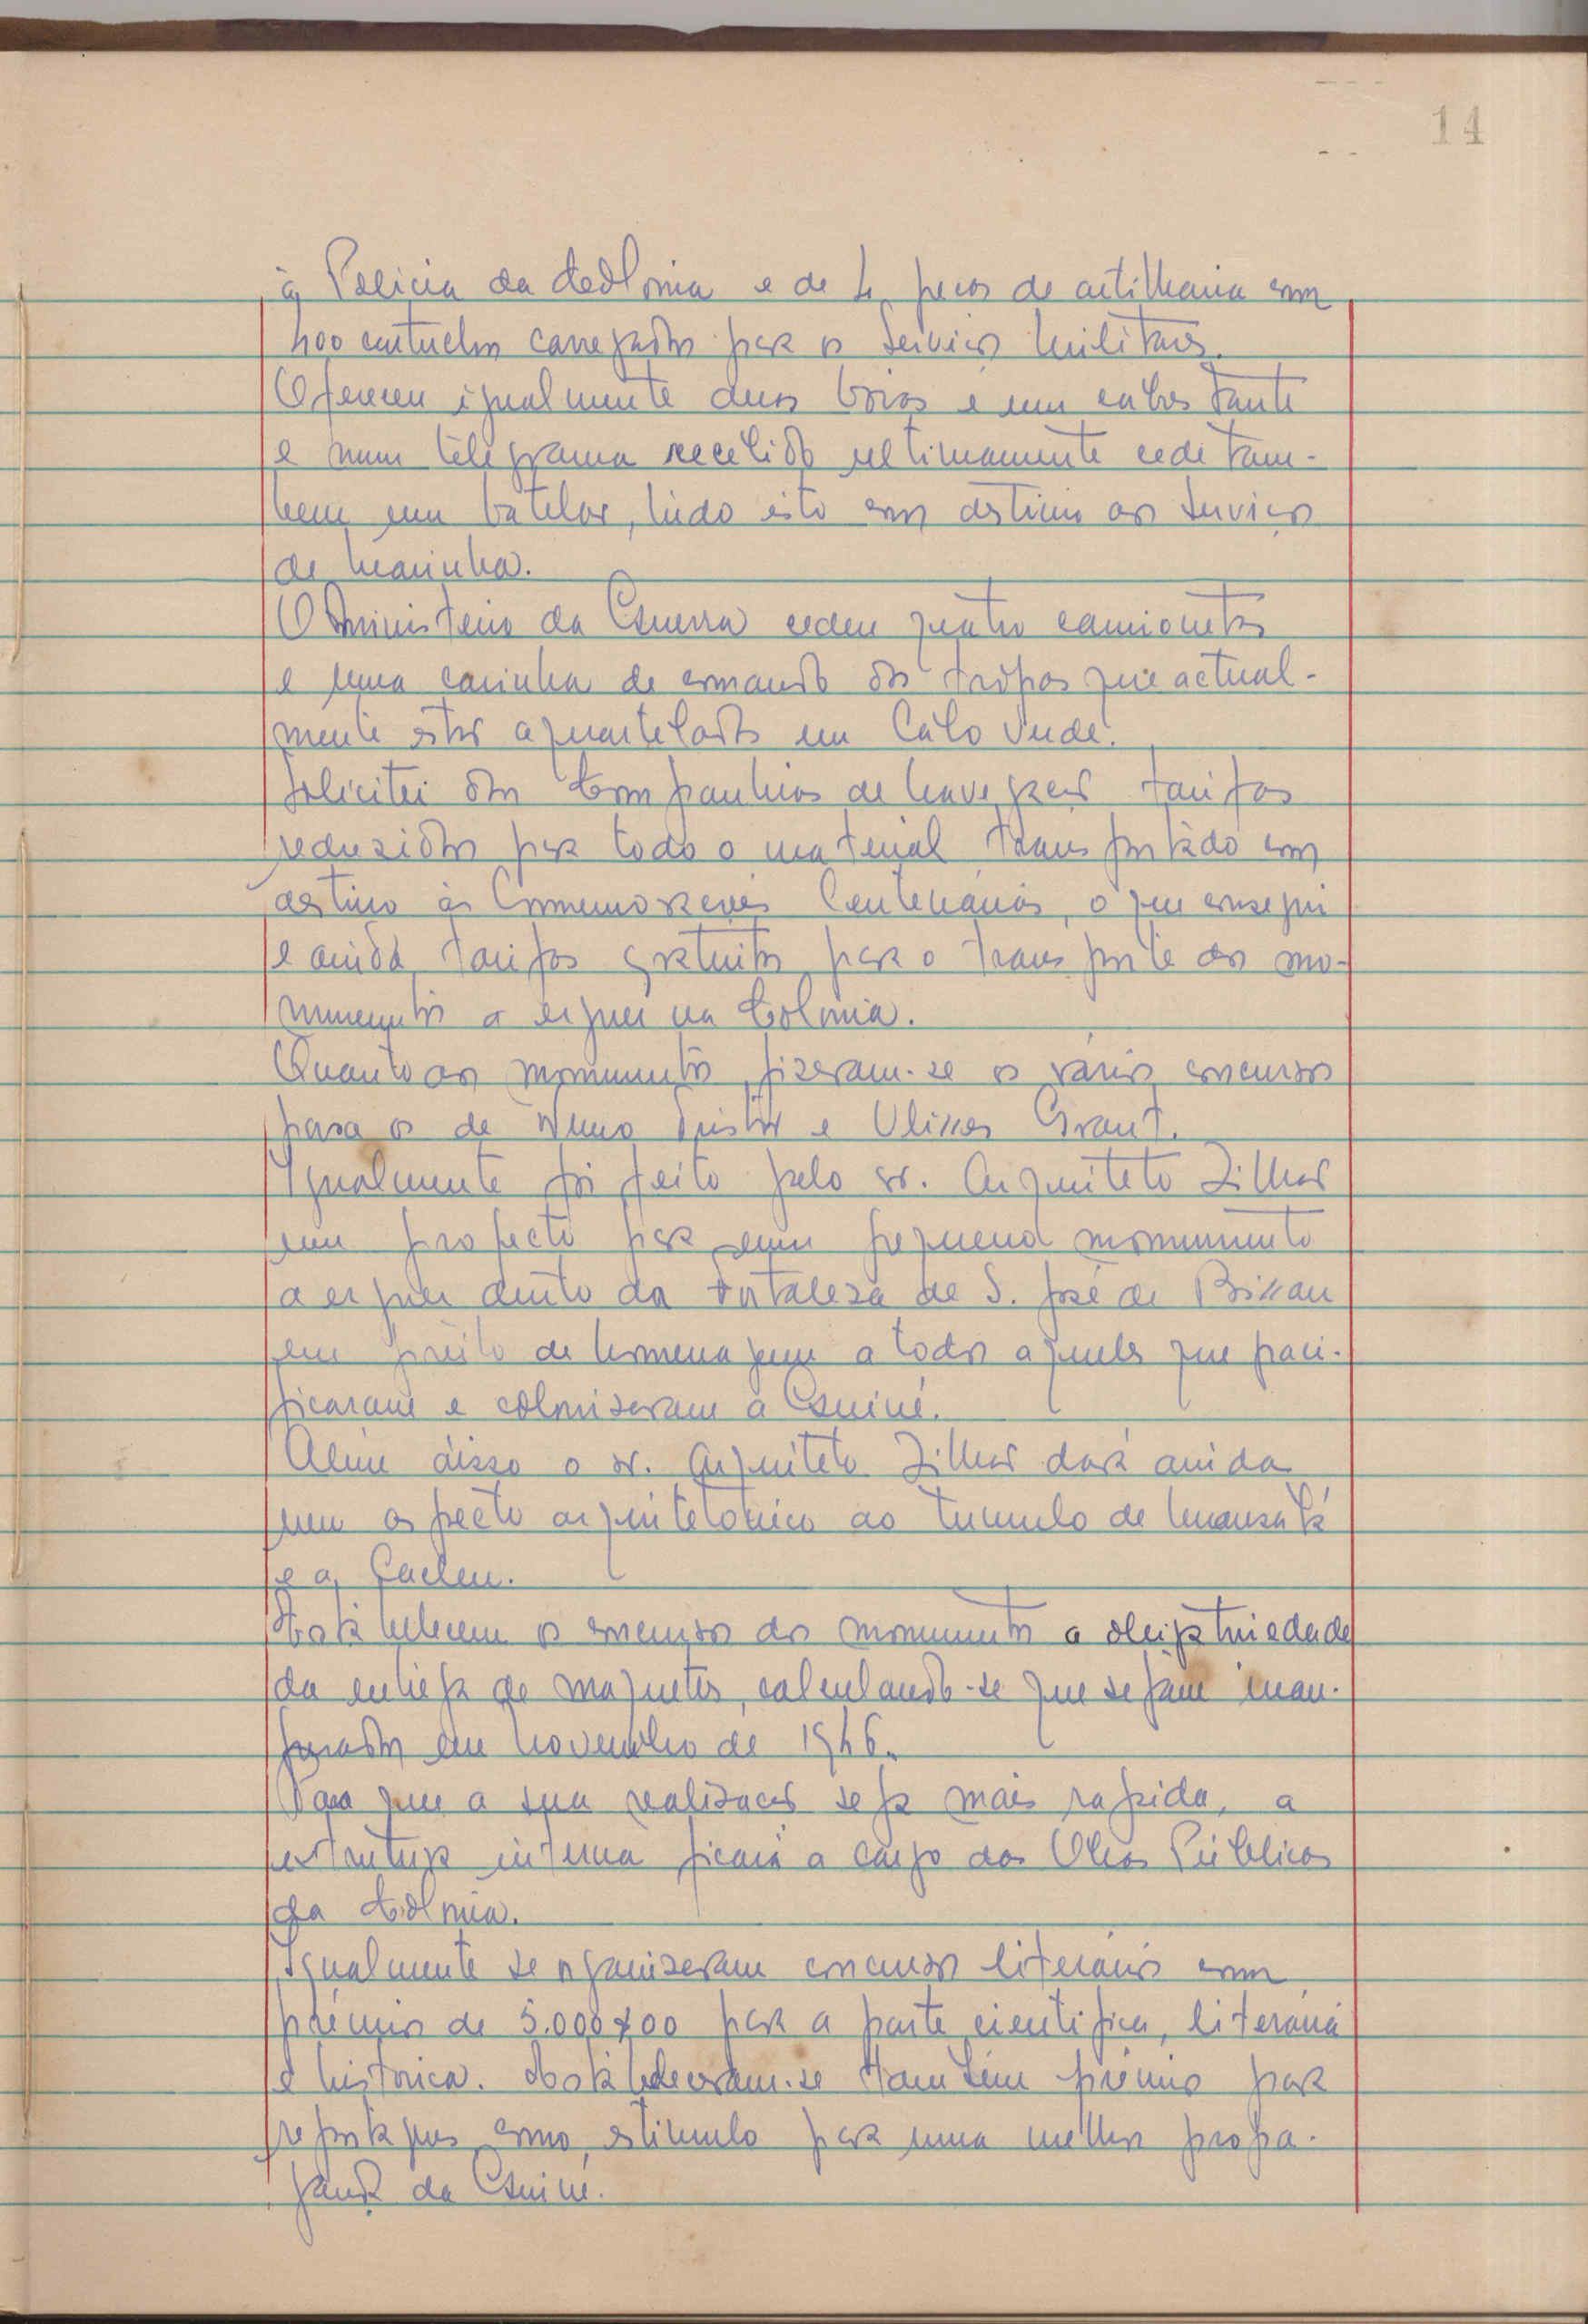 14
à Policia da Colonia e de 4 peças de artilharia com
400 cartuchos carregados para os Serviços Militares.
Ofereceu igualmente duas boias e um cabrestante
e num telegrama recebido ultimamente cede tam-
bem um batelão, tudo isto com destino aos Serviços
de Marinha.
O Ministério da Guerra cedeu quatro camionetas
e uma carrinha de comando das tropas que actual-
mente estão aquarteladas em Cabo Verde.
Solicitei das Companhias de Navegação tarifas
reduzidas para todo o material transportado com
destino às Comemorações Centenárias, o que consegui
e ainda tarifas gratuitas para o transporte dos mo-
numentos a erguer na Colonia.
Quanto aos monumentos, fizeram-se os vários concursos
para os de Nuno Tristão e Ulisses Grant.
Igualmente foi feito pelo sr. Arquiteto Zilhão
um projecto para um pequeno monumento
a erguer dentro da Fortaleza de S. José de Bissau
em preito de homenagem a todos aqueles que paci-
ficaram e colonizaram a Guiné.
Alem disso o sr. Arquiteto Zilhão dará ainda
um aspecto arquitetonico ao tumulo de
e a Cacheu.
Estabelecem os concursos dos monumentos a obrigatoriedade
da entrega de maquetes, calculando-se que sejam inau-
gurados em Novembro de 1946.
Para que a sua realização seja mais rapida, a
estrutura interna ficará a cargo das Obras Públicas
da Colonia.
Igualmente se organizaram concursos literários com
prémios de 5.000$00 para a parte cientifica, literária
e historica. Estabeleceram-se tambem prémios para
reportagens como estimulo para uma melhor propa-
ganda da Guiné.